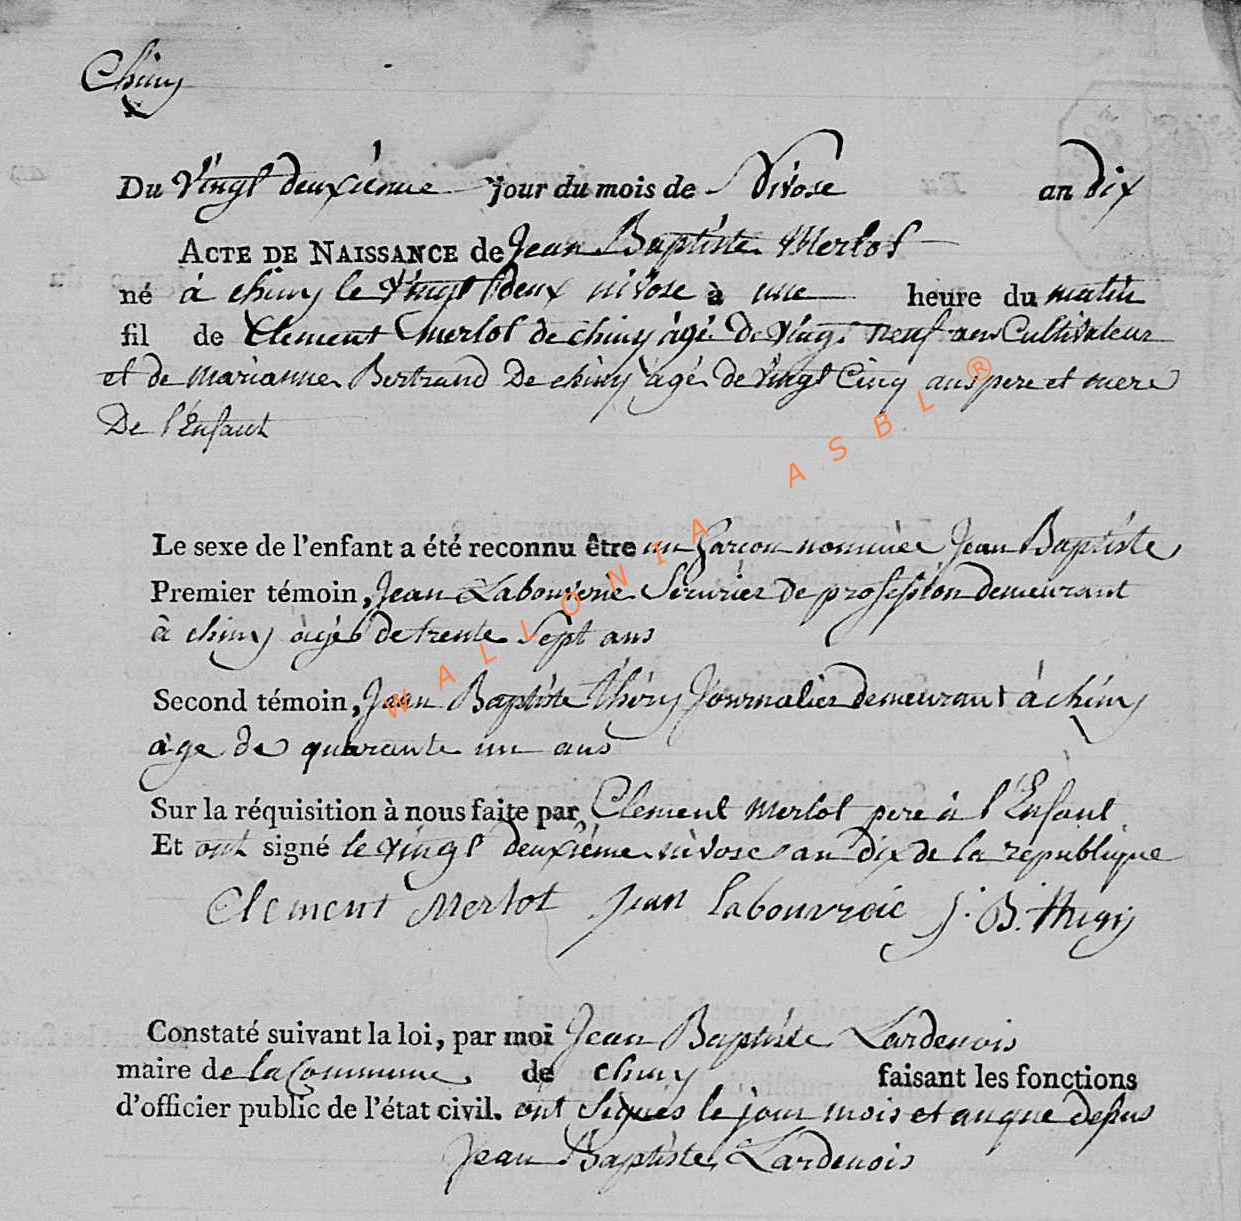 Chiny
Du Vingt deuxieme jour du mois de Nivose an dix
ACTE DE NAISSANCE de Jean Baptiste Merlot
né à chiny le vingt deux nivose à une heure du matin
fil de Clement Merlot de chiny âgé de vingt neuf ans Cultivateur
et de marianne Bertrand De chiny âgé de vingt Cinq ans pere et mere
De l'Enfant
Le sexe de l'enfant a été reconnu être un Garcon nommée Jean Baptiste
Premier témoin, Jean Labouverie Serurier de profession demeurant
à chiny agés de trente Sept ans
Second témoin, Jean Baptiste théry Journalier demeurant à chiny
age de quarante un ans
Sur la réquisition à nous faite par Clement Merlot pere à l'Enfant
Et ont signé le vingt deuxiéme nivose an dix de la republique
Clement Merlot Jean Labouvroie J. B. thery
Constaté suivant la loi, par moi Jean Baptiste Lardenois
maire de la Commune de chiny faisant les fonctions
d'officier public de l'état civil. ont signés le jour mois et an que desus
Jean Baptiste Lardenois
WALLONIA ASBL ®